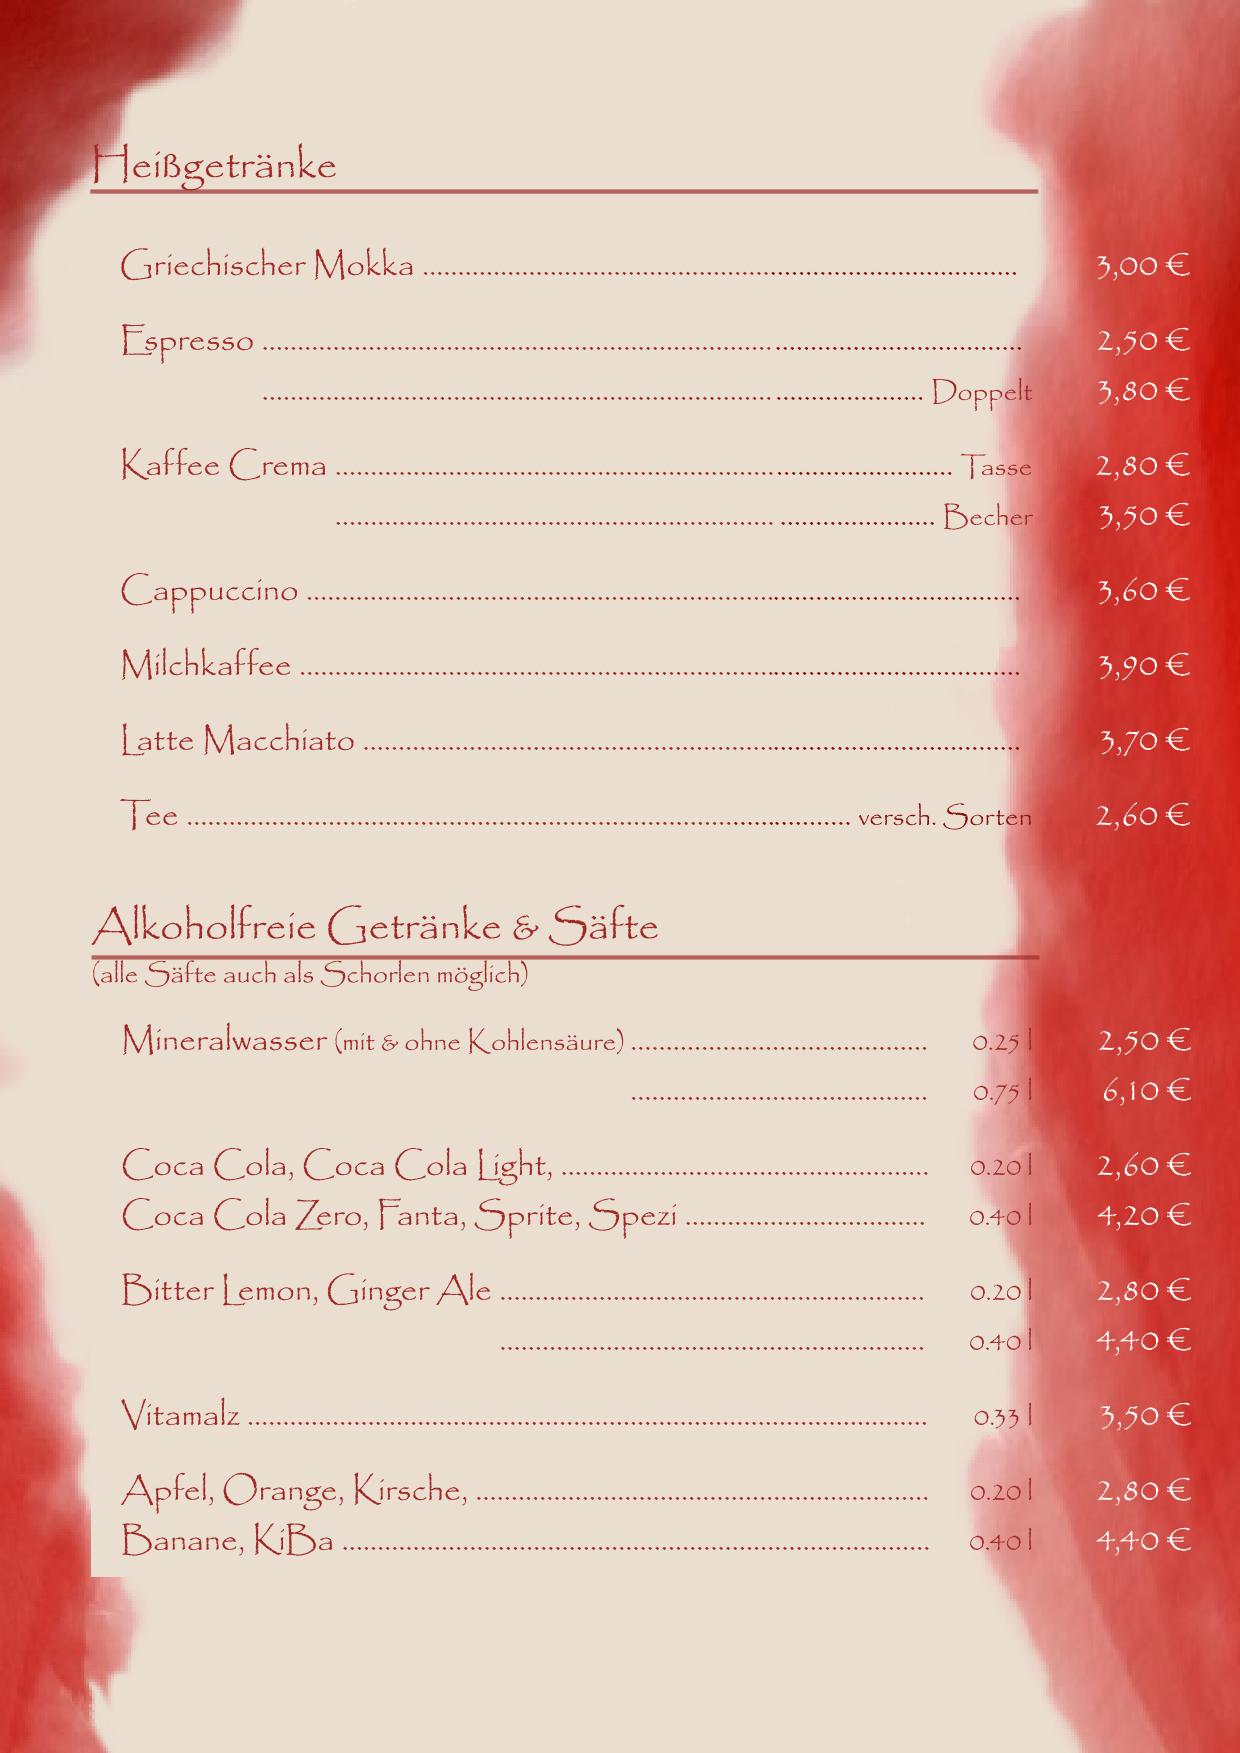 Heißgetränke
Griechischer Mokka ........................ 3,00 €
Espresso ........................ 2,50 €
........................ Doppelt 3,80 €
Kaffee Crema ........................ Tasse 2,80 €
........................ Becher 3,50 €
Cappuccino ........................ 3,60 €
Milchkaffee ........................ 3,90 €
Latte Macchiato ........................ 3,70 €
Tee ........................ versch. Sorten 2,60 €
Alkoholfreie Getränke & Säfte
(alle Säfte auch als Schorlen möglich)
Mineralwasser (mit & ohne Kohlensäure) ........................ 0.25 l 2,50 €
........................ 0.75 l 6,10 €
Coca Cola, Coca Cola Light, ........................ 0.20 l 2,60 €
Coca Cola Zero, Fanta, Sprite, Spezi ........................ 0.40 l 4,20 €
Bitter Lemon, Ginger Ale ........................ 0.20 l 2,80 €
........................ 0.40 l 4,40 €
Vitamalz ........................ 0.33 l 3,50 €
Apfel, Orange, Kirsche, ........................ 0.20 l 2,80 €
Banane, KiBa ........................ 0.40 l 4,40 €